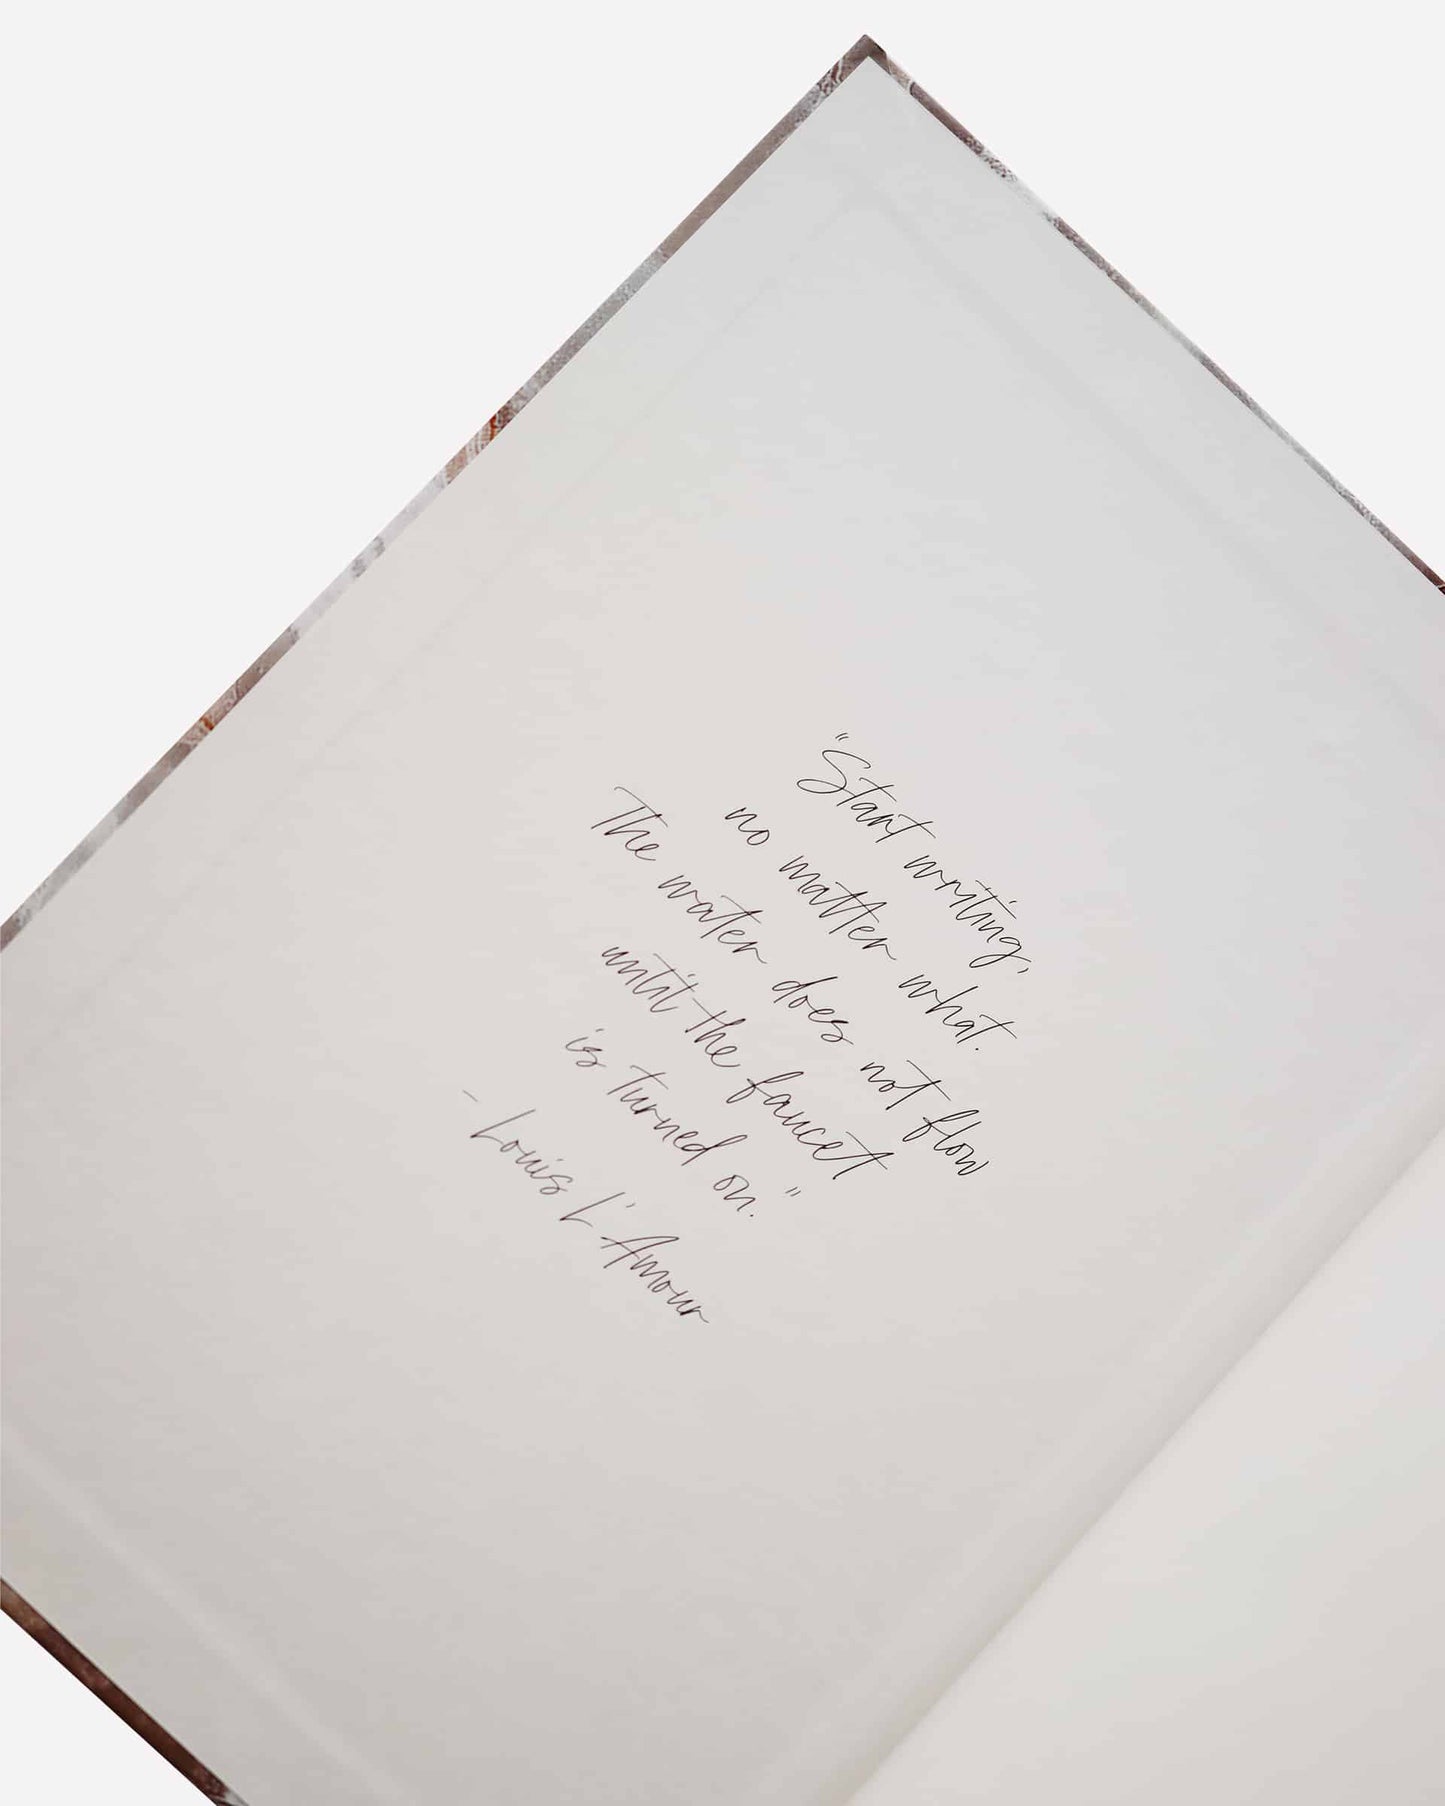 "Start writing,
no matter what.
The water does not flow
until the faucet
is turned on."
- Louis L'Amour